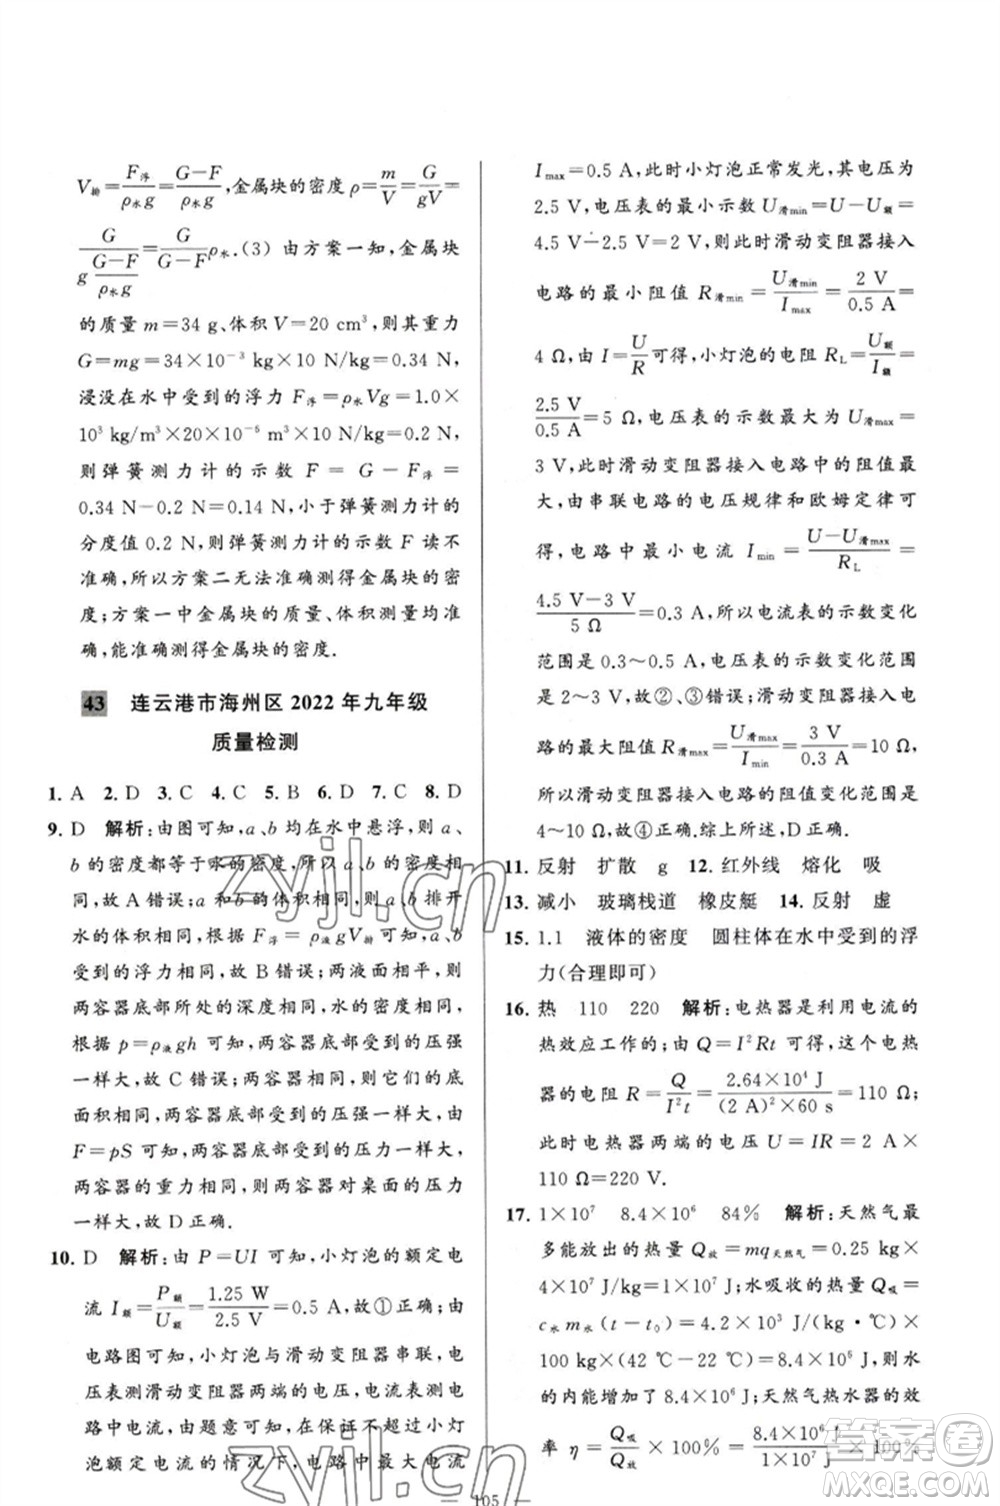 V排=F浮/ρ水g=(G−F)/ρ水g,金属块的密度ρ=m/V=G/gV=
G/(g·(G−F)/ρ水g)=G/(G−F)ρ水.(3) 由方案一知,金属块
的质量 m=34 g、体积 V=20 cm³,则其重力
G=mg=34×10⁻³ kg×10 N/kg=0.34 N,
浸没在水中受到的浮力 F浮=ρ水Vg=1.0×
10³ kg/m³×20×10⁻⁶ m³×10 N/kg=0.2 N,
则弹簧测力计的示数 F=G−F浮=
0.34 N−0.2 N=0.14 N,小于弹簧测力计的
分度值 0.2 N,则弹簧测力计的示数 F 读不
准确,所以方案二无法准确测得金属块的密
度;方案一中金属块的质量、体积测量均准
确,能准确测得金属块的密度.
43 连云港市海州区 2022 年九年级
质量检测
1. A 2. D 3. C 4. C 5. B 6. D 7. C 8. D
9. D 解析:由图可知,a、b 均在水中悬浮,则 a、
b 的密度都等于水的密度,所以 a、b 的密度相
同,故 A 错误;a、b 的体积相同,则 a、b 排开
水的体积相同,根据 F浮=ρ液gV排 可知,a、b 受到
的浮力相同,故 B 错误;两液面相平,则
两容器底部所处的深度相同,水的密度相同,
根据 p=ρ液gh 可知,两容器底部受到的压强
一样大,故 C 错误;由于两个相同容器的底
面积相同,两容器底部受到的压强一样大,由
F=pS 可知,两容器底部受到的压力一样大,
两容器的重力相同,则两容器对桌面的压力
一样大,故 D 正确.
10. D 解析:由 P=UI 可知,小灯泡的额定电
流 I额=P额/U额=1.25 W/2.5 V=0.5 A,故①正确;由
电路图可知,小灯泡与滑动变阻器串联,电
压表测滑动变阻器两端的电压,电流表测电
路中电流,由题意可知,在保证不超过小灯
泡额定电流的情况下,电路中最大电流
I max=0.5 A,此时小灯泡正常发光,其电压为
2.5 V,电压表的最小示数 U滑min=U−U额=
4.5 V−2.5 V=2 V,则此时滑动变阻器接入
电路的最小阻值 R滑min=U滑min/I max=2 V/0.5 A=
4 Ω,由 I=U/R 可得,小灯泡的电阻 RL=U额/I额=
2.5 V/0.5 A=5 Ω,电压表的示数最大为 U滑max=
3 V,此时滑动变阻器接入电路中的阻值最
大,由串联电路的电压规律和欧姆定律可
得,电路中最小电流 I min=(U−U滑max)/RL=
(4.5 V−3 V)/5 Ω=0.3 A,所以电流表的示数变化
范围是 0.3～0.5 A,电压表的示数变化范围
是 2～3 V,故②、③错误;滑动变阻器接入
电路的最大阻值 R滑max=U滑max/I min=3 V/0.3 A=10 Ω,
所以滑动变阻器接入电路的阻值变化范围是
4～10 Ω,故④正确.综上所述,D正确.
11. 反射 扩散 g 12. 红外线 熔化 吸
13. 减小 玻璃栈道 橡皮艇 14. 反射 虚
15. 1.1 液体的密度 圆柱体在水中受到的浮
力(合理即可)
16. 热 110 220 解析:电热器是利用电流的
热效应工作的;由 Q=I²Rt 可得,这个电热
器的电阻 R=Q/I²t=2.64×10⁴ J/((2 A)²×60 s)=110 Ω;
此时电热器两端的电压 U=IR=2 A×
110 Ω=220 V.
17. 1×10⁷ 8.4×10⁶ 84% 解析:天然气最
多能放出的热量 Q放=mq天然气=0.25 kg×
4×10⁷ J/kg=1×10⁷ J;水吸收的热量 Q吸=
c水m水(t−t₀)=4.2×10³ J/(kg·℃)×
100 kg×(42 ℃−22 ℃)=8.4×10⁶ J,则水
的内能增加了 8.4×10⁶ J;天然气热水器的效
率 η=Q吸/Q放×100%=8.4×10⁶ J/1×10⁷ J×100%
105
zyjl.cn
zyjl.cn
答案圈
MXQE.COM